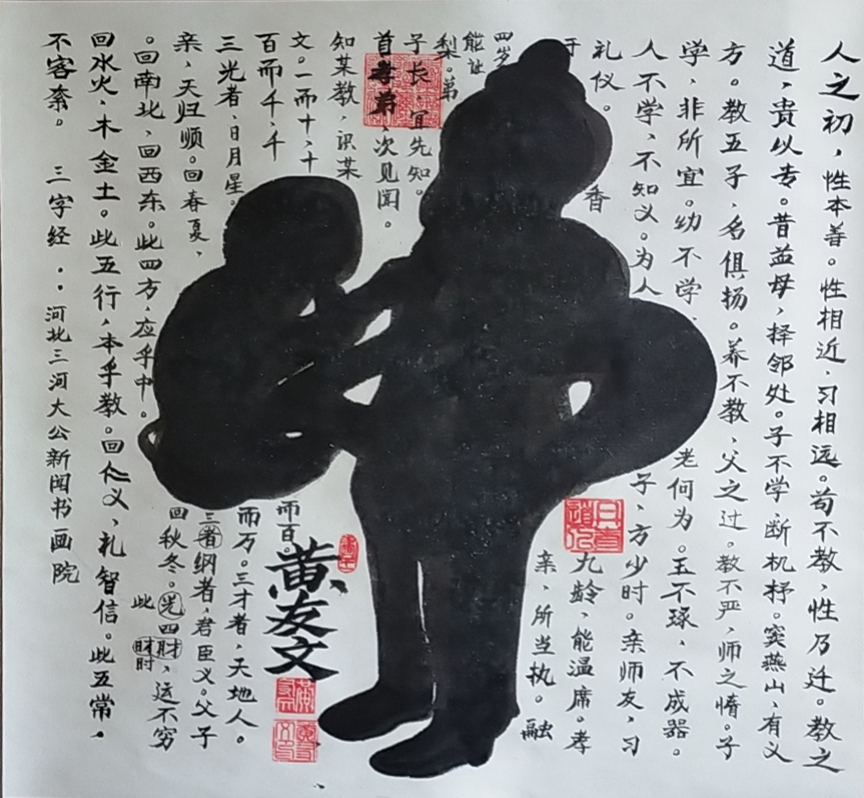 人之初，性本善。性相近、习相远。苟不教，性乃迁。教之
道，貴以专。昔益母，择邻处。子不学、断机杼。窦燕山，有义
方。教五子，名俱扬。养不教、父之过。教不严，师之惰。子
学，非所宜。幼不学、老何为。玉不琢，不成器。
人不学，不知义。为人子，方少时。亲师友，习
礼仪。香九龄，能温席。孝
于亲，所当执。融
四岁，
能让
梨。弟
子长，宜先知。
首孝弟，次见闻。
知某教，识某
文。一而十、十而百。
百而千，千而万。三才者，天地人。
三光者，日月星。三者纲者，君臣义。父子
亲，天归顺。回春夏，回秋冬。光四財，运不穷
此
財时
。回南北，回西东。此四方，应乎中。
回水火，木金土。此五行，本乎教。回仁义，礼智信。此五常，
不容紊。 三字经：河北三河大公新闻书画院
黄友文